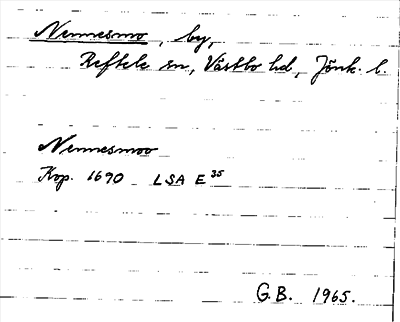 Nennesmo, by,
Reftele sn, Västbo hd, Jönk. l.
Nennesmoo
Kop. 1690 LSA E 35
G.B. 1965.